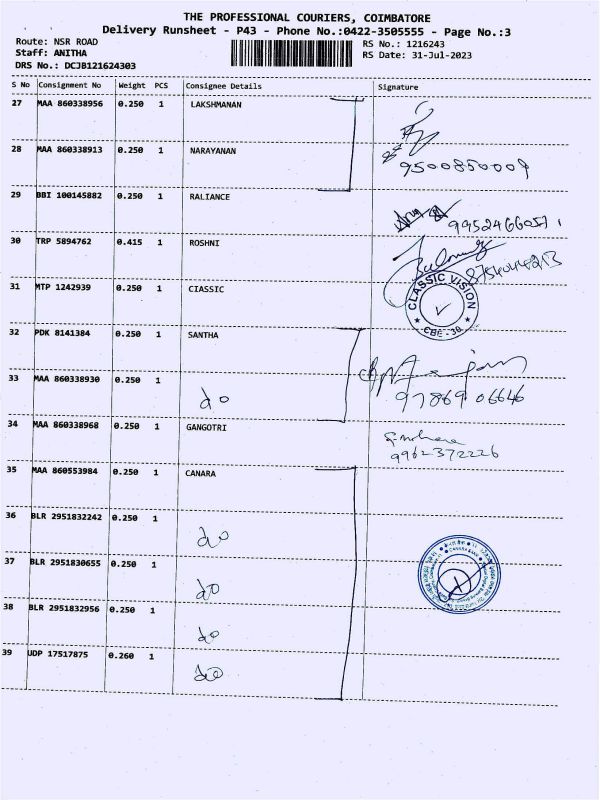 THE PROFESSIONAL COURIERS, COIMBATORE
Delivery Runsheet - P43 - Phone No.:0422-3505555 - Page No.:3
Route: NSR ROAD
RS No.: 1216243
Staff: ANITHA
RS Date: 31-Jul-2023
DRS No.: DCJB121624303
S No Consignment No Weight PCS Consignee Details Signature
27 MAA 860338956 0.250 1 LAKSHMANAN
28 MAA 860338913 0.250 1 NARAYANAN
9500850009
29 BBI 100145882 0.250 1 RALIANCE
9952466057
30 TRP 5894762 0.415 1 ROSHNI
31 MTP 1242939 0.250 1 CIASSIC
CLASSIC VISION
CBE - 30
32 PDK 8141384 0.250 1 SANTHA
33 MAA 860338930 0.250 1 do
97869 06646
34 MAA 860338968 0.250 1 GANGOTRI
9962372226
35 MAA 860553984 0.250 1 CANARA
36 BLR 2951832242 0.250 1 do
37 BLR 2951830655 0.250 1 do
38 BLR 2951832956 0.250 1 do
39 UDP 17517875 0.260 1 do